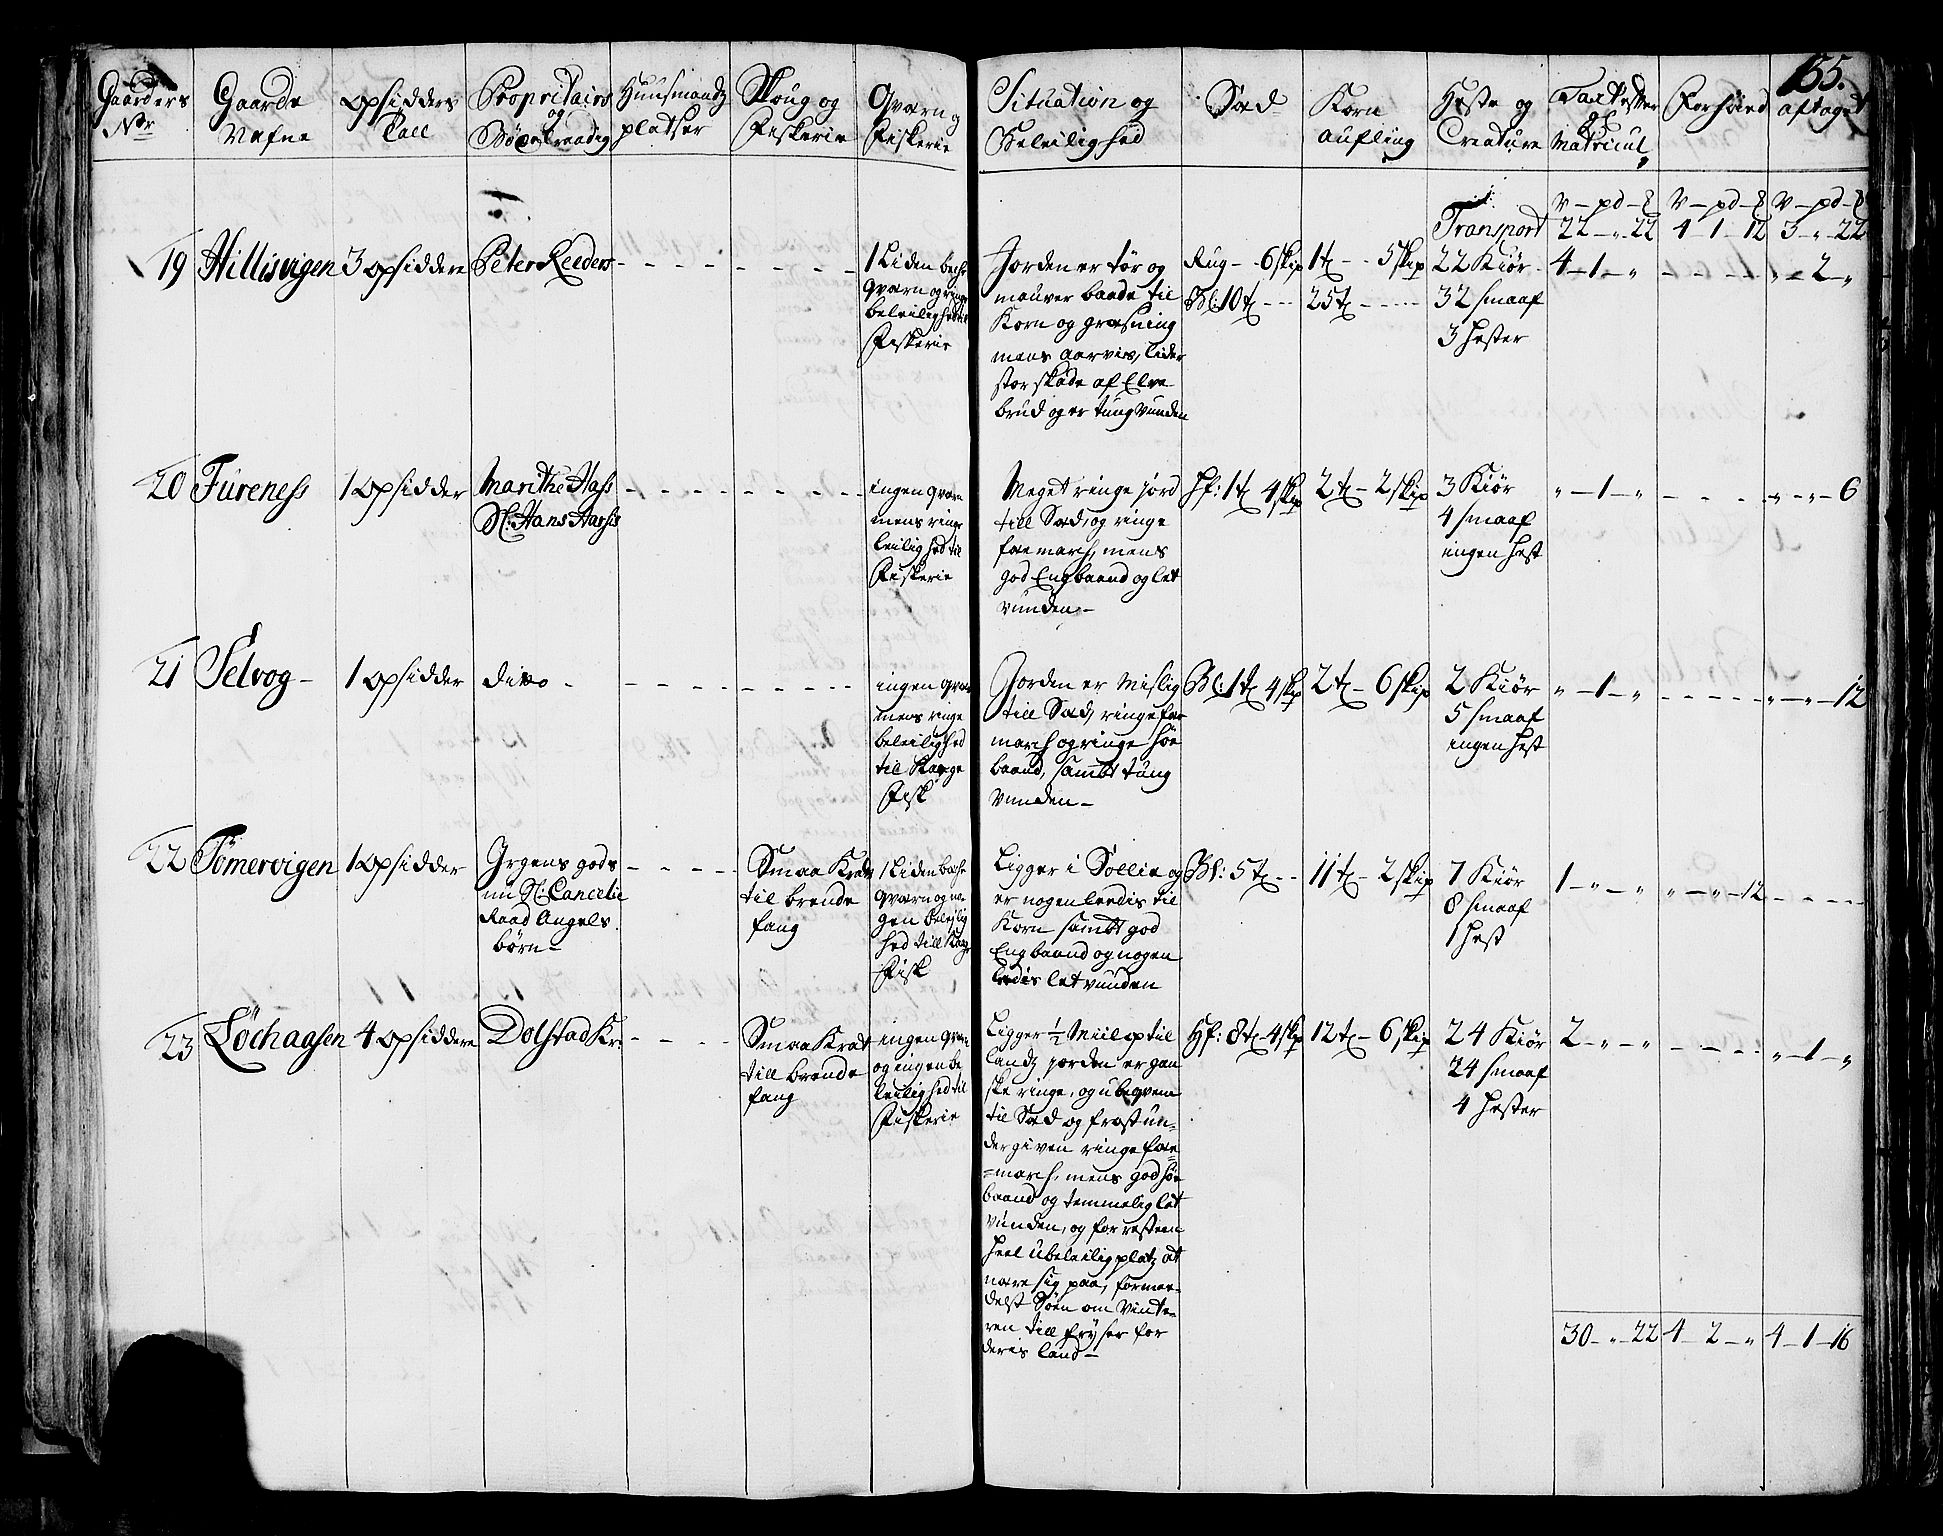 155.
Gaarders
Nr
Gaarde
Nafne
opsidders
Tall
Proprietairs
og
Bøxelraadig
Huusmandz
pladser
Skoug og
Fiskerie
Qvarn og
Fiskerie
Situation og
Beleilighed
Sæd
Korn
aufling
Heste og
Creature
Taxt efter
Matricul
Forhøied
aftaget
V — pd — £
V — pd — £
V — pd — £
Transport
22 — „ — 22
4 — 1 — 12
3 — „ — 22
19
Hillisvigen
3 opsiddere
Peter Reeders
1 Liden beche
qvarn og ringe
beleilighed til
Fiskerie
Jorden er tør og
mauver baade til
Korn og græsning
mens aarvis, lider
stor skade af Elve
brud og er tungvunden
Rug - - 6 skip
Bl: 10 t - - -
1 t - - 5 skip
25 t - - - -
22 Kiør
32 smaaf
3 hester
4 — 1 — „
„ — 2 — „
20
Fureness
1 opsidder
Marithe Hass
Sl: Hans Hasses
ingen qvarn
mens ringe
leilighed til
Fiskerie
Meget ringe jord
till Sæd, og ringe
fæemarch, mens
god Engbaand og let
vunden —
Hf: 1 t 4 skip
2 t - 2 skip
3 Kiør
4 smaaf
ingen hest
„ — 1 — „
„ — „ — 6
21
Selvog -
1 opsidder
dito -
ingen qvarn
mens ringe
beleilighed
til Kaage
Fisk
Jorden er Mislig
till Sæd, ringe fæe
march og ringe høe
baand, sambt tung
vunden —
Bl: 1 t 4 skip
2 t - 6 skip
2 Kiør
5 smaaf
ingen hest
„ — 1 — „
„ — „ — 12
22
Tømervigen
1 opsidder
Irgens gods
nu Sl: Cancelie
Raad Angels
børn —
Smaa Krat
til brende
fang
1 Liden bech
qvarn og no
gen beleilig
hed till Kaage
Fisk
Ligger i Sollie og
er nogenledis til
Korn sambt god
Engbaand og nogen
ledis let vunden
Bl: 5 t - -
11 t - 2 skip
7 Kiør
8 smaaf
1 hest
1 — „ — „
„ — „ — 12
23
Løchaasen
4 opsiddere
Dolstad Kr:
Smaa Krat
till brende
fang
ingen qvarn
og ingen be
leilighed til
Fiskerie
Ligger 1/2 Miil op til
landz jorden er gan
ske ringe, og ubeqvem
til Sæd og frost un-
dergiven ringe fæe=
=march, mens god høe
baand og temmelig let
vunden, og for resten
heel ubeleilig platz at
nære sig paa, forme-
delst Søen om Vinte-
ren till fryser for
deris land —
Hf: 8 t - 4 skip
12 t - 6 skip
24 Kiør
24 smaaf
4 hester
2 — „ — „
„ — 1 — „
30 — „ — 22
4 — 2 — „
4 — 1 — 16